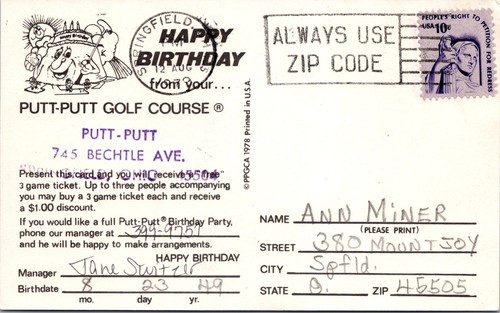 HAPPY
BIRTHDAY
from your...
PUTT-PUTT GOLF COURSE ®
PUTT-PUTT
745 BECHTLE AVE.
Present this card and you will receive a "free"
3 game ticket. Up to three people accompanying
you may buy a 3 game ticket each and receive
a $1.00 discount.
If you would like a full Putt-Putt® Birthday Party,
phone our manager at 399-9757
and he will be happy to make arrangements.
HAPPY BIRTHDAY
Manager Jane Switzer
Birthdate 8 23 49
mo. day yr.
©PPGCA 1978 Printed in U.S.A.
SPRINGFIELD
PM
12 AUG
1978
ALWAYS USE
ZIP CODE
PEOPLE'S RIGHT TO PETITION FOR REDRESS
USA 10c
NAME ANN MINER
(PLEASE PRINT)
STREET 380 MOUNTJOY
CITY Spfld.
STATE O. ZIP 45505